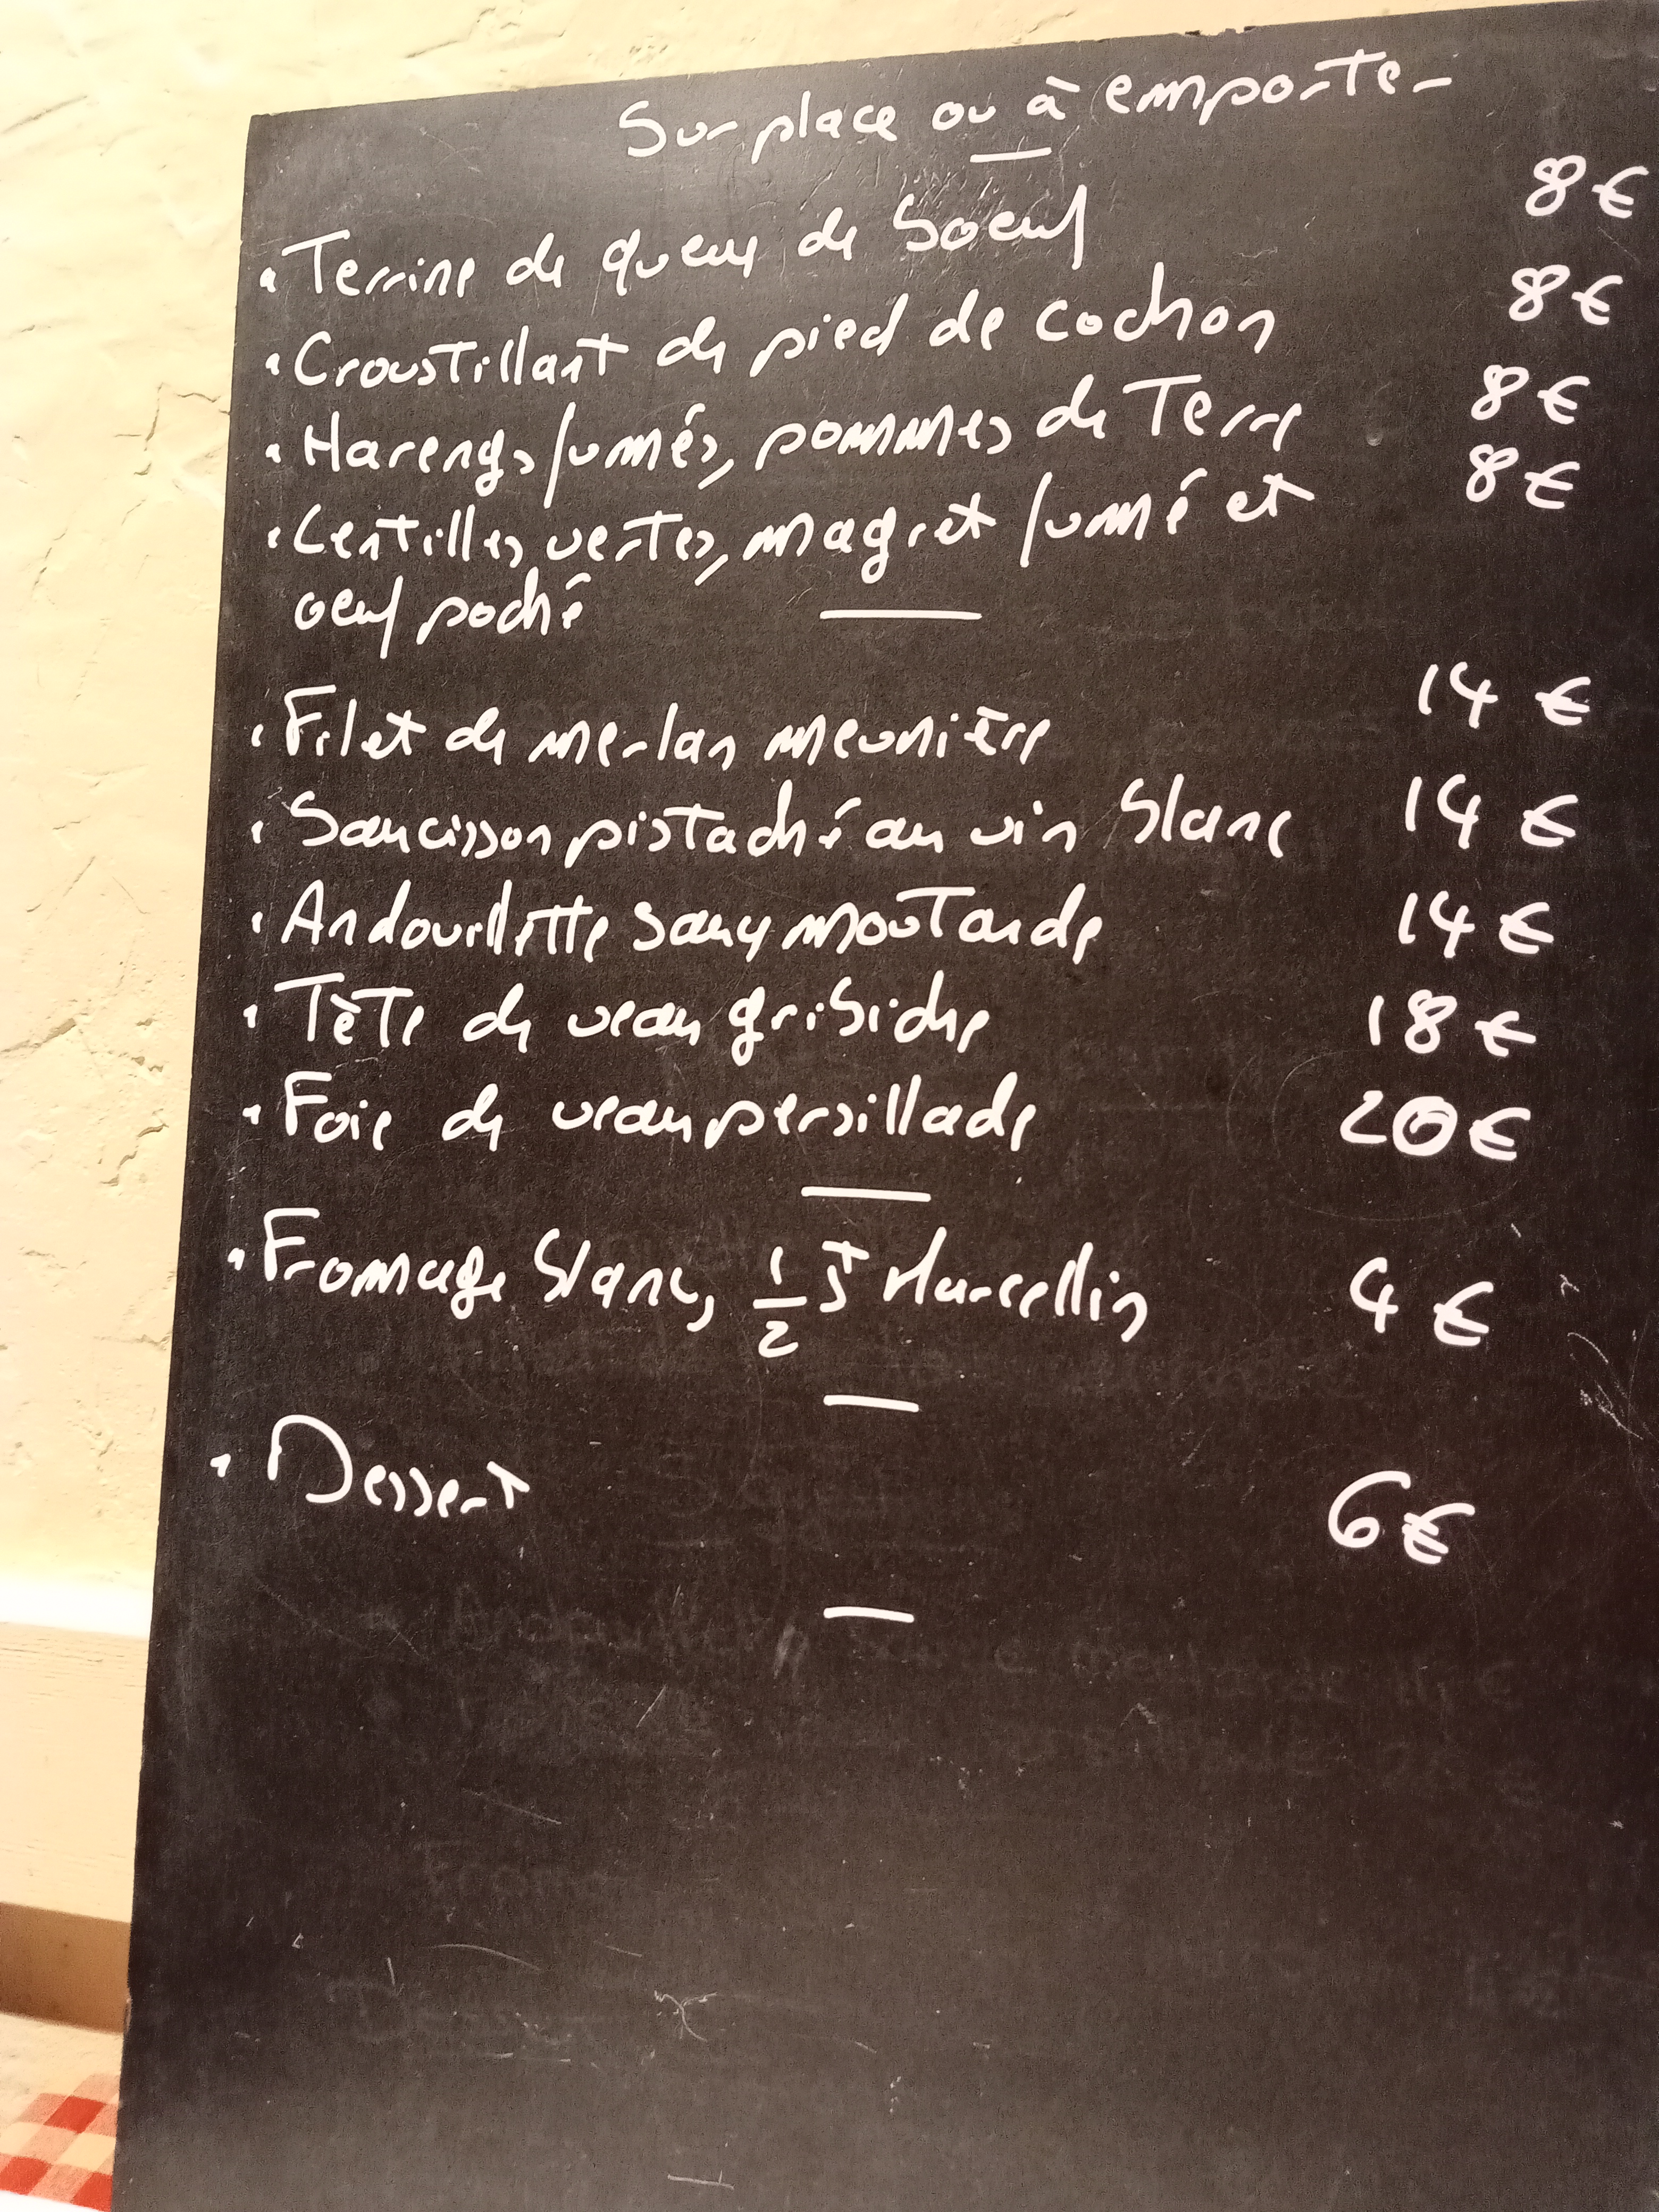 Sur place ou à emporter
• Terrine de queue de boeuf 8 €
• Croustillant de pied de cochon 8 €
• Harengs fumés, pommes de Terre 8 €
• Lentilles vertes, magret fumé et 8 €
oeuf poché
• Filet de merlan meunière 14 €
• Saucisson pistaché au vin blanc 14 €
• Andouillette sauce moutarde 14 €
• Tète de veau gribiche 18 €
• Foie de veau persillade 20 €
• Fromage blanc, 1/2 St Marcellin 4 €
• Dessert 6 €